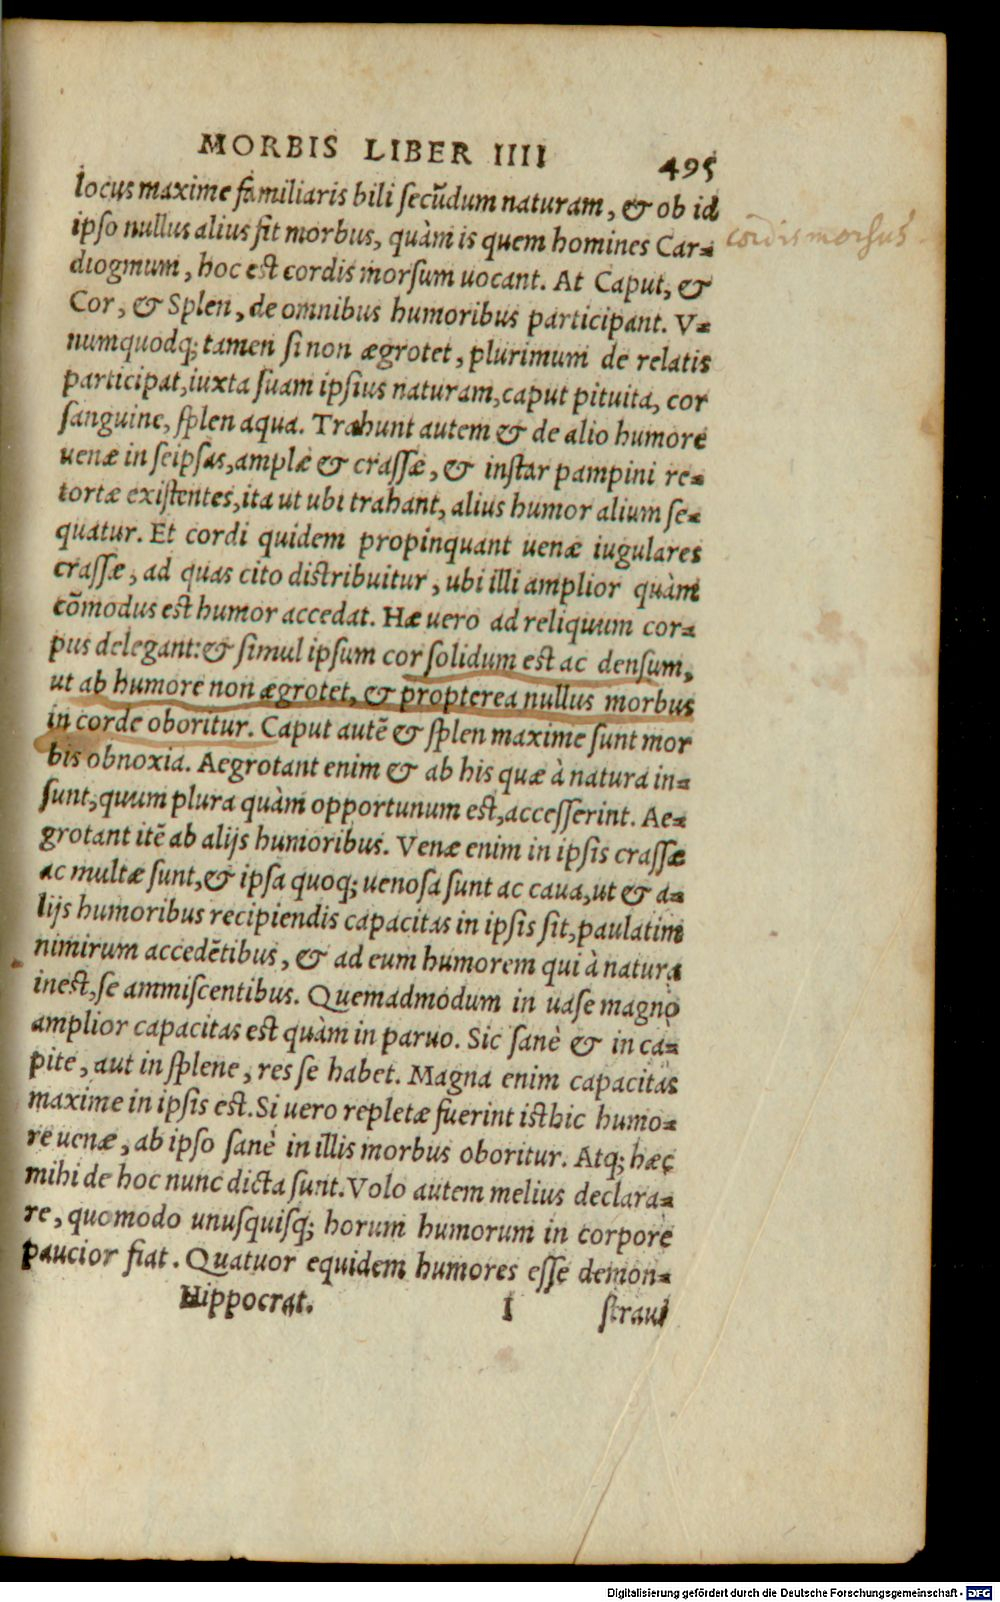 MORBIS LIBER IIII 495
locus maxime familiaris bili secũdum naturam, & ob id
ipso nullus alius fit morbus, quàm is quem homines Car-
diogmum, hoc est cordis morsum uocant. At Caput, &
Cor, & Splen, de omnibus humoribus participant. V-
numquodq; tamen si non ægrotet, plurimum de relatis
participat, iuxta suam ipsius naturam, caput pituita, cor
sanguine, splen aqua. Trahunt autem & de alio humore
uenæ in seipsas, amplæ & crassæ, & instar pampini re-
tortæ existentes, ita ut ubi trahant, alius humor alium se-
quatur. Et cordi quidem propinquant uenæ iugulares
crassæ, ad quas cito distribuitur, ubi illi amplior quàm
cõmodus est humor accedat. Hæ uero ad reliquum cor-
pus delegant: & simul ipsum cor solidum est ac densum,
ut ab humore non ægrotet, & propterea nullus morbus
in corde oboritur. Caput autẽ & splen maxime sunt mor
bis obnoxia. Aegrotant enim & ab his quæ à natura in-
sunt, quum plura quàm opportunum est, accesserint. Ae-
grotant itẽ ab alijs humoribus. Venæ enim in ipsis crassæ
ac multæ sunt, & ipsa quoq; uenosa sunt ac caua, ut & a-
lijs humoribus recipiendis capacitas in ipsis sit, paulatim
nimirum accedẽtibus, & ad eum humorem qui à natura
inest, se ammiscentibus. Quemadmodum in uase magno
amplior capacitas est quàm in paruo. Sic sanè & in ca-
pite, aut in splene, res se habet. Magna enim capacitas
maxime in ipsis est. Si uero repletæ fuerint isthic humo-
re uenæ, ab ipso sanè in illis morbus oboritur. Atq; hæc
mihi de hoc nunc dicta sunt. Volo autem melius declara-
re, quomodo unusquisq; horum humorum in corpore
paucior fiat. Quatuor equidem humores esse demon-
Hippocrat. I straui
cordis morsus
Digitalisierung gefördert durch die Deutsche Forschungsgemeinschaft - DFG